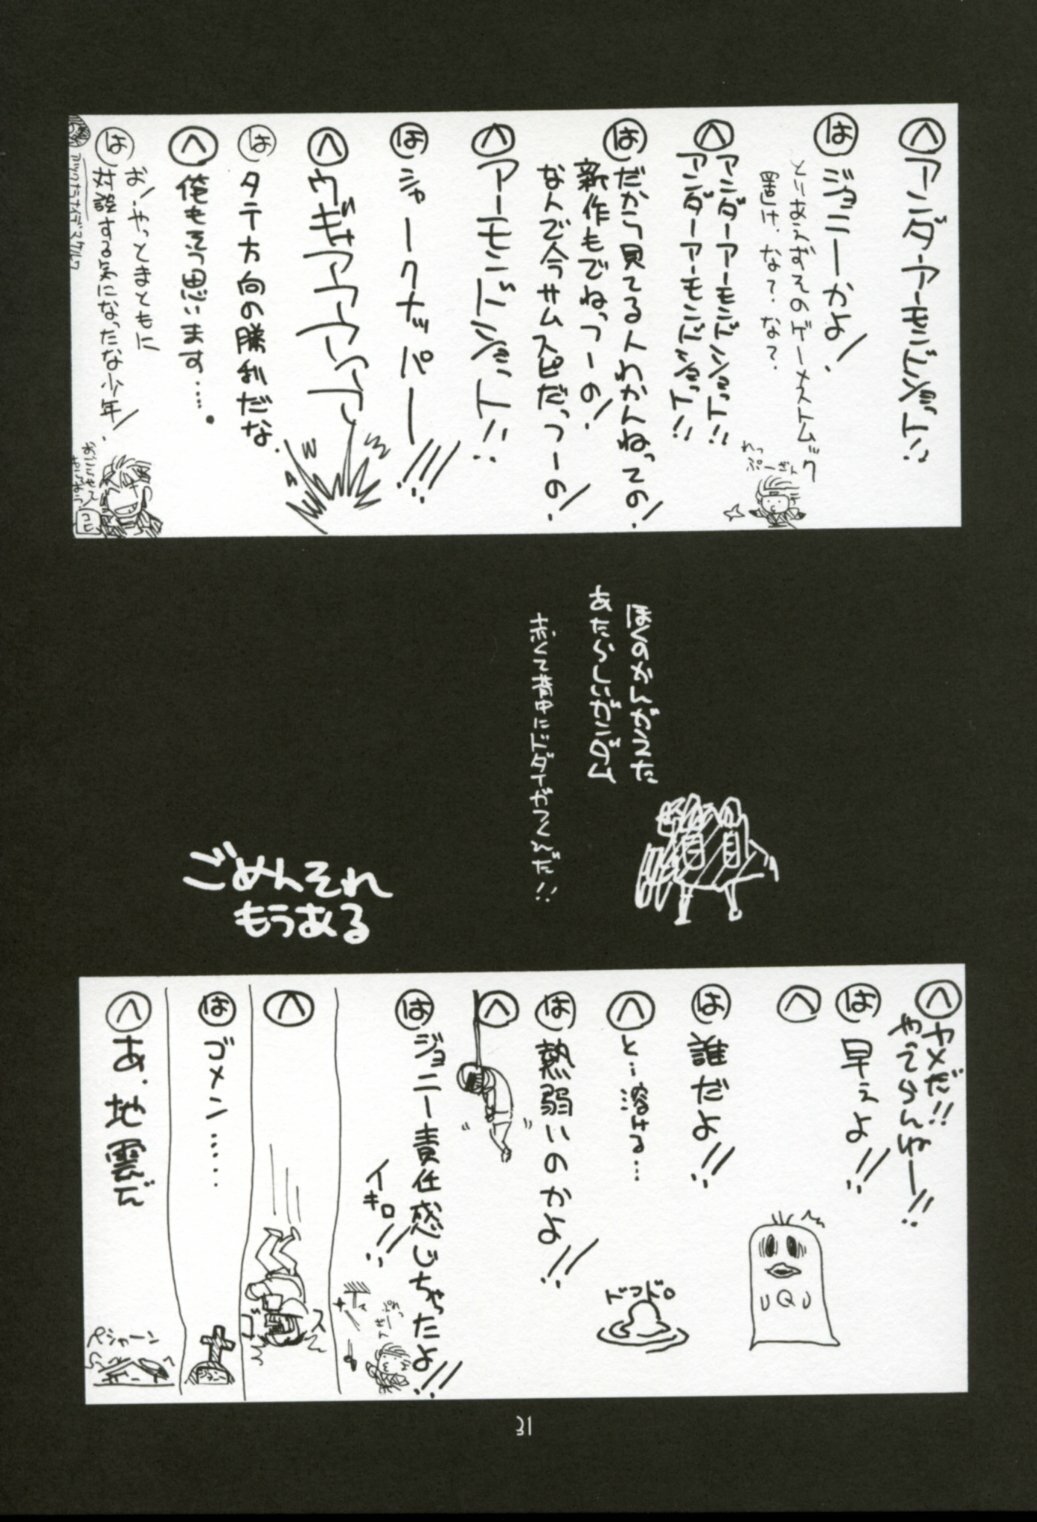 へ アンダーアーモンドショット!!
は ジョニーかよ!
とりあえずそのゲーメストムック
置け、な?、な?
れっぷーざん
へ アンダーアーモンドショット!!
アンダーアーモンドショット!!
は だから見てる人わかんねっての!
新作もでねっつーの!
なんで今サムスピだっつーの!
へ アーモンドショット!!
は シャークナッパー!!!
へ ウギャアアアアアア
は タテ方向の勝利だな
へ 俺もそう思います……。
は お、やっとまともに
対談する気になったな少年!
ぼくのかんがえた
あたらしいガンダム
赤くて背中にドダイがつくんだ!!
ごめんそれ
もうある
へ ヤメだ!!
やってらんねー!!
は 早えよ!!
へ
は 誰だよ!!
へ と…溶ける…
ドロドロ
は 熱弱いのかよ!!
へ
は ジョニー責任感じちゃったよ!!
イキロ!!
へ
は ゴメン……
へ あ、地雲だ
ペシャーン
31